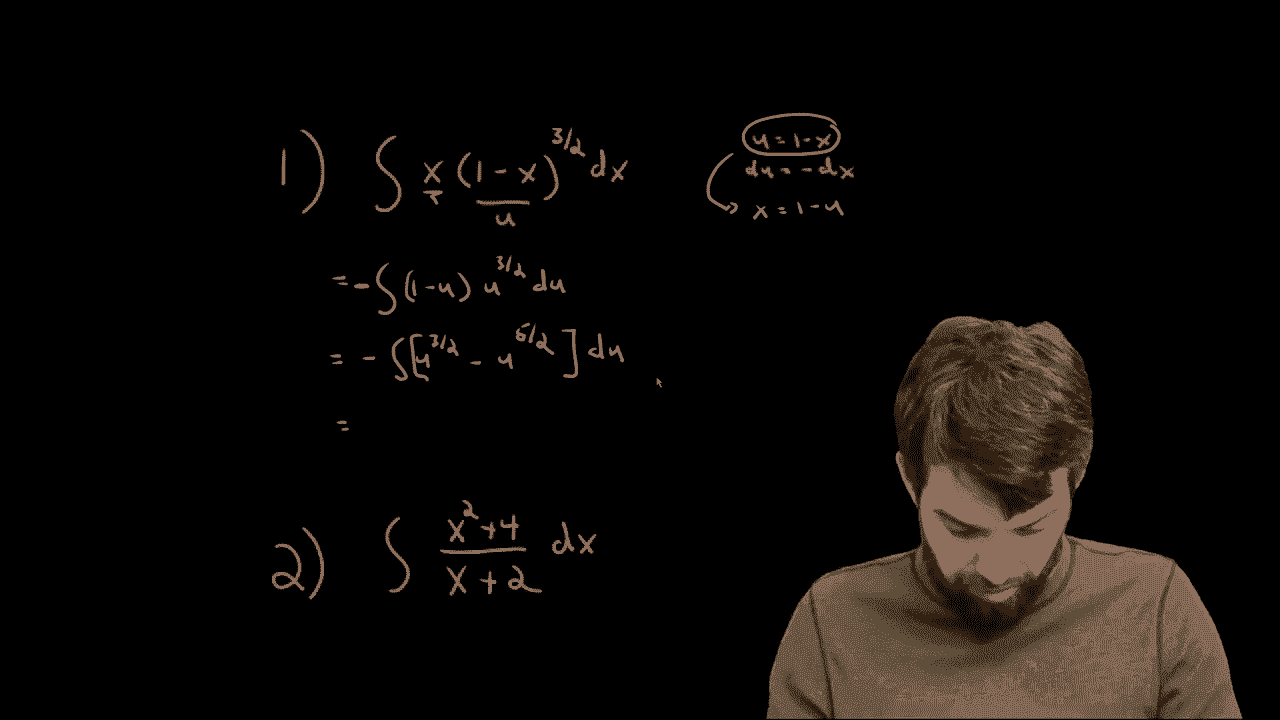 1) ∫ x (1 - x)^{3/2} dx
u
u = 1 - x
du = - dx
x = 1 - u
= - ∫ (1 - u) u^{3/2} du
= - ∫ [u^{3/2} - u^{5/2}] du
=
2) ∫ \frac{x^2 + 4}{x + 2} dx